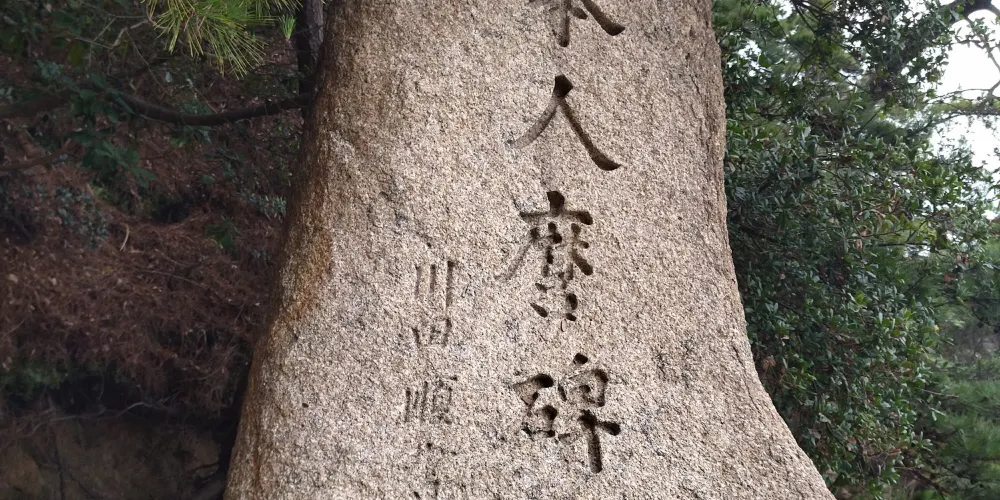 人麿碑
川田順